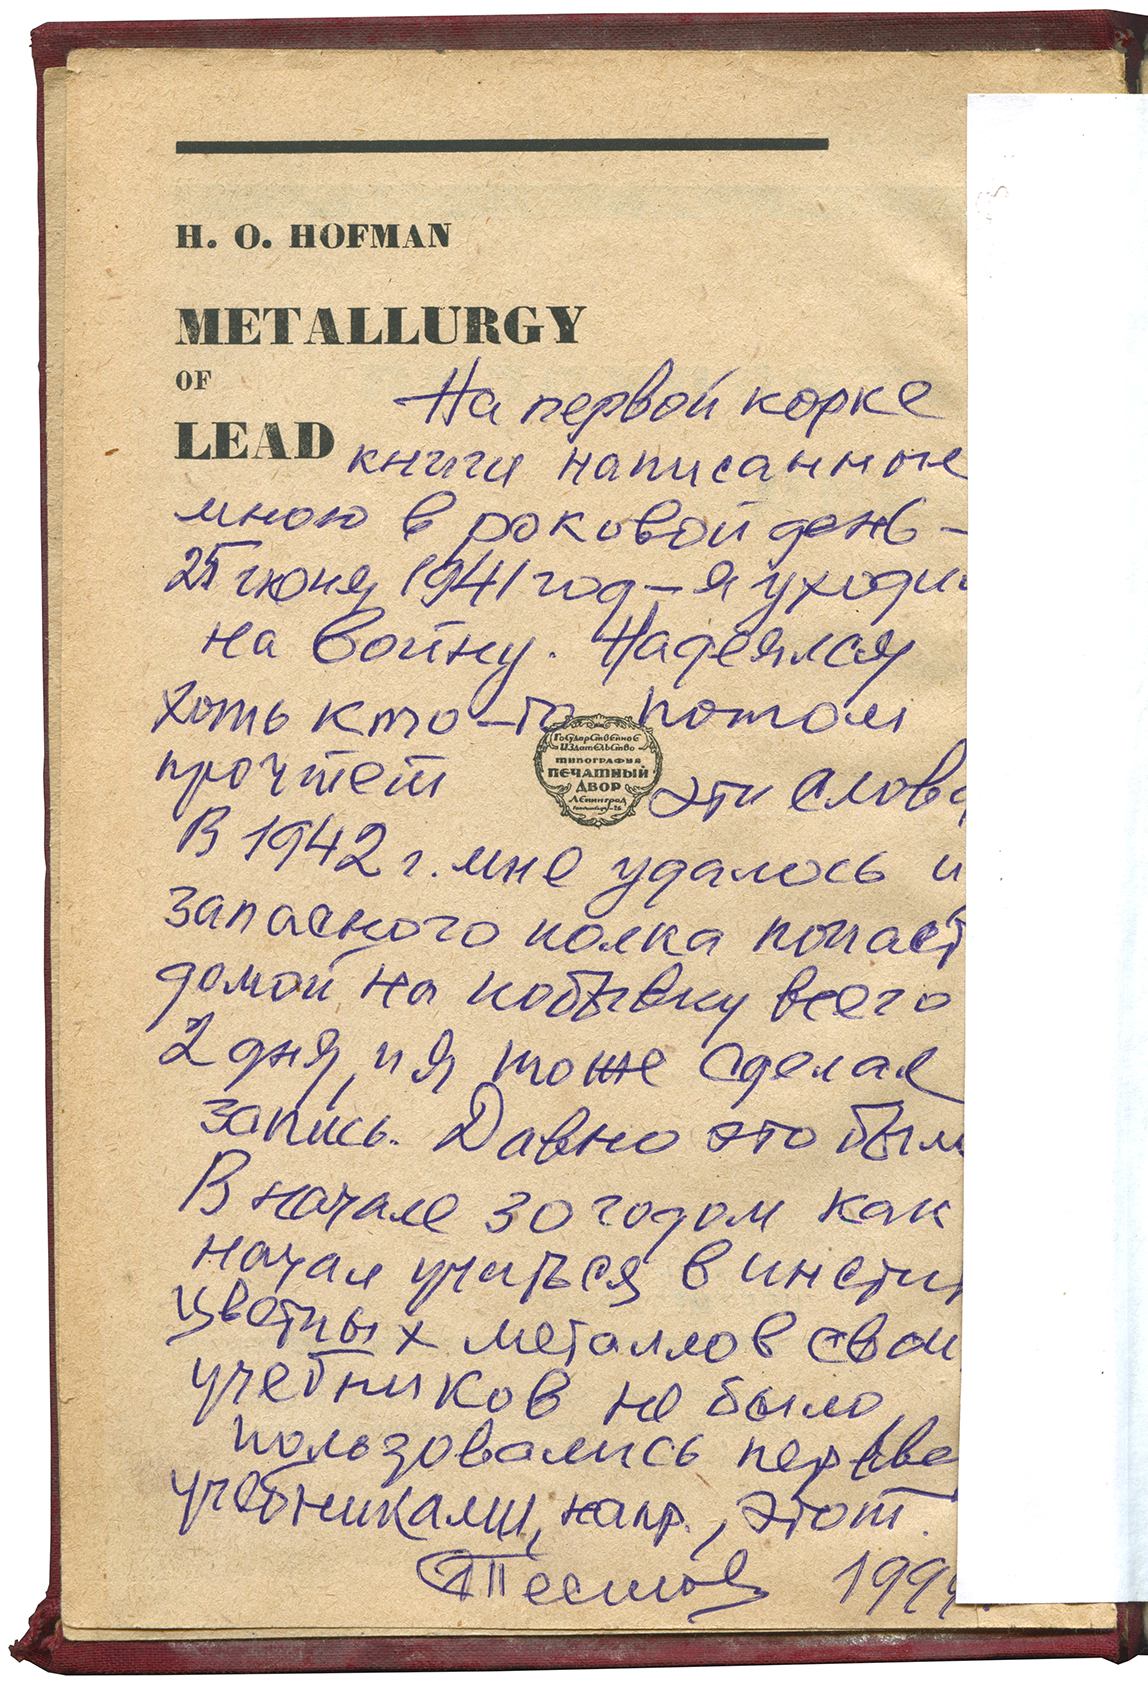 H. O. HOFMAN
METALLURGY
OF
LEAD
На первой корке
книги написанное
мною в роковой день –
25 июня 1941 год – я уходи
на войну. Надеялся
хоть кто-то потом
прочтет эти слова
Государственное
Издательство
типография
ПЕЧАТНЫЙ
ДВОР
Ленинград
В 1942 г. мне удалось и
запасного полка попаст
домой на побывку всего
2 дня, и я тоже сделал
запись. Давно это был
В начале 30 годом как
начал учиться в инсти
цветных металлов сво
учебников не было,
пользовались
учебниками, напр., этот.
199